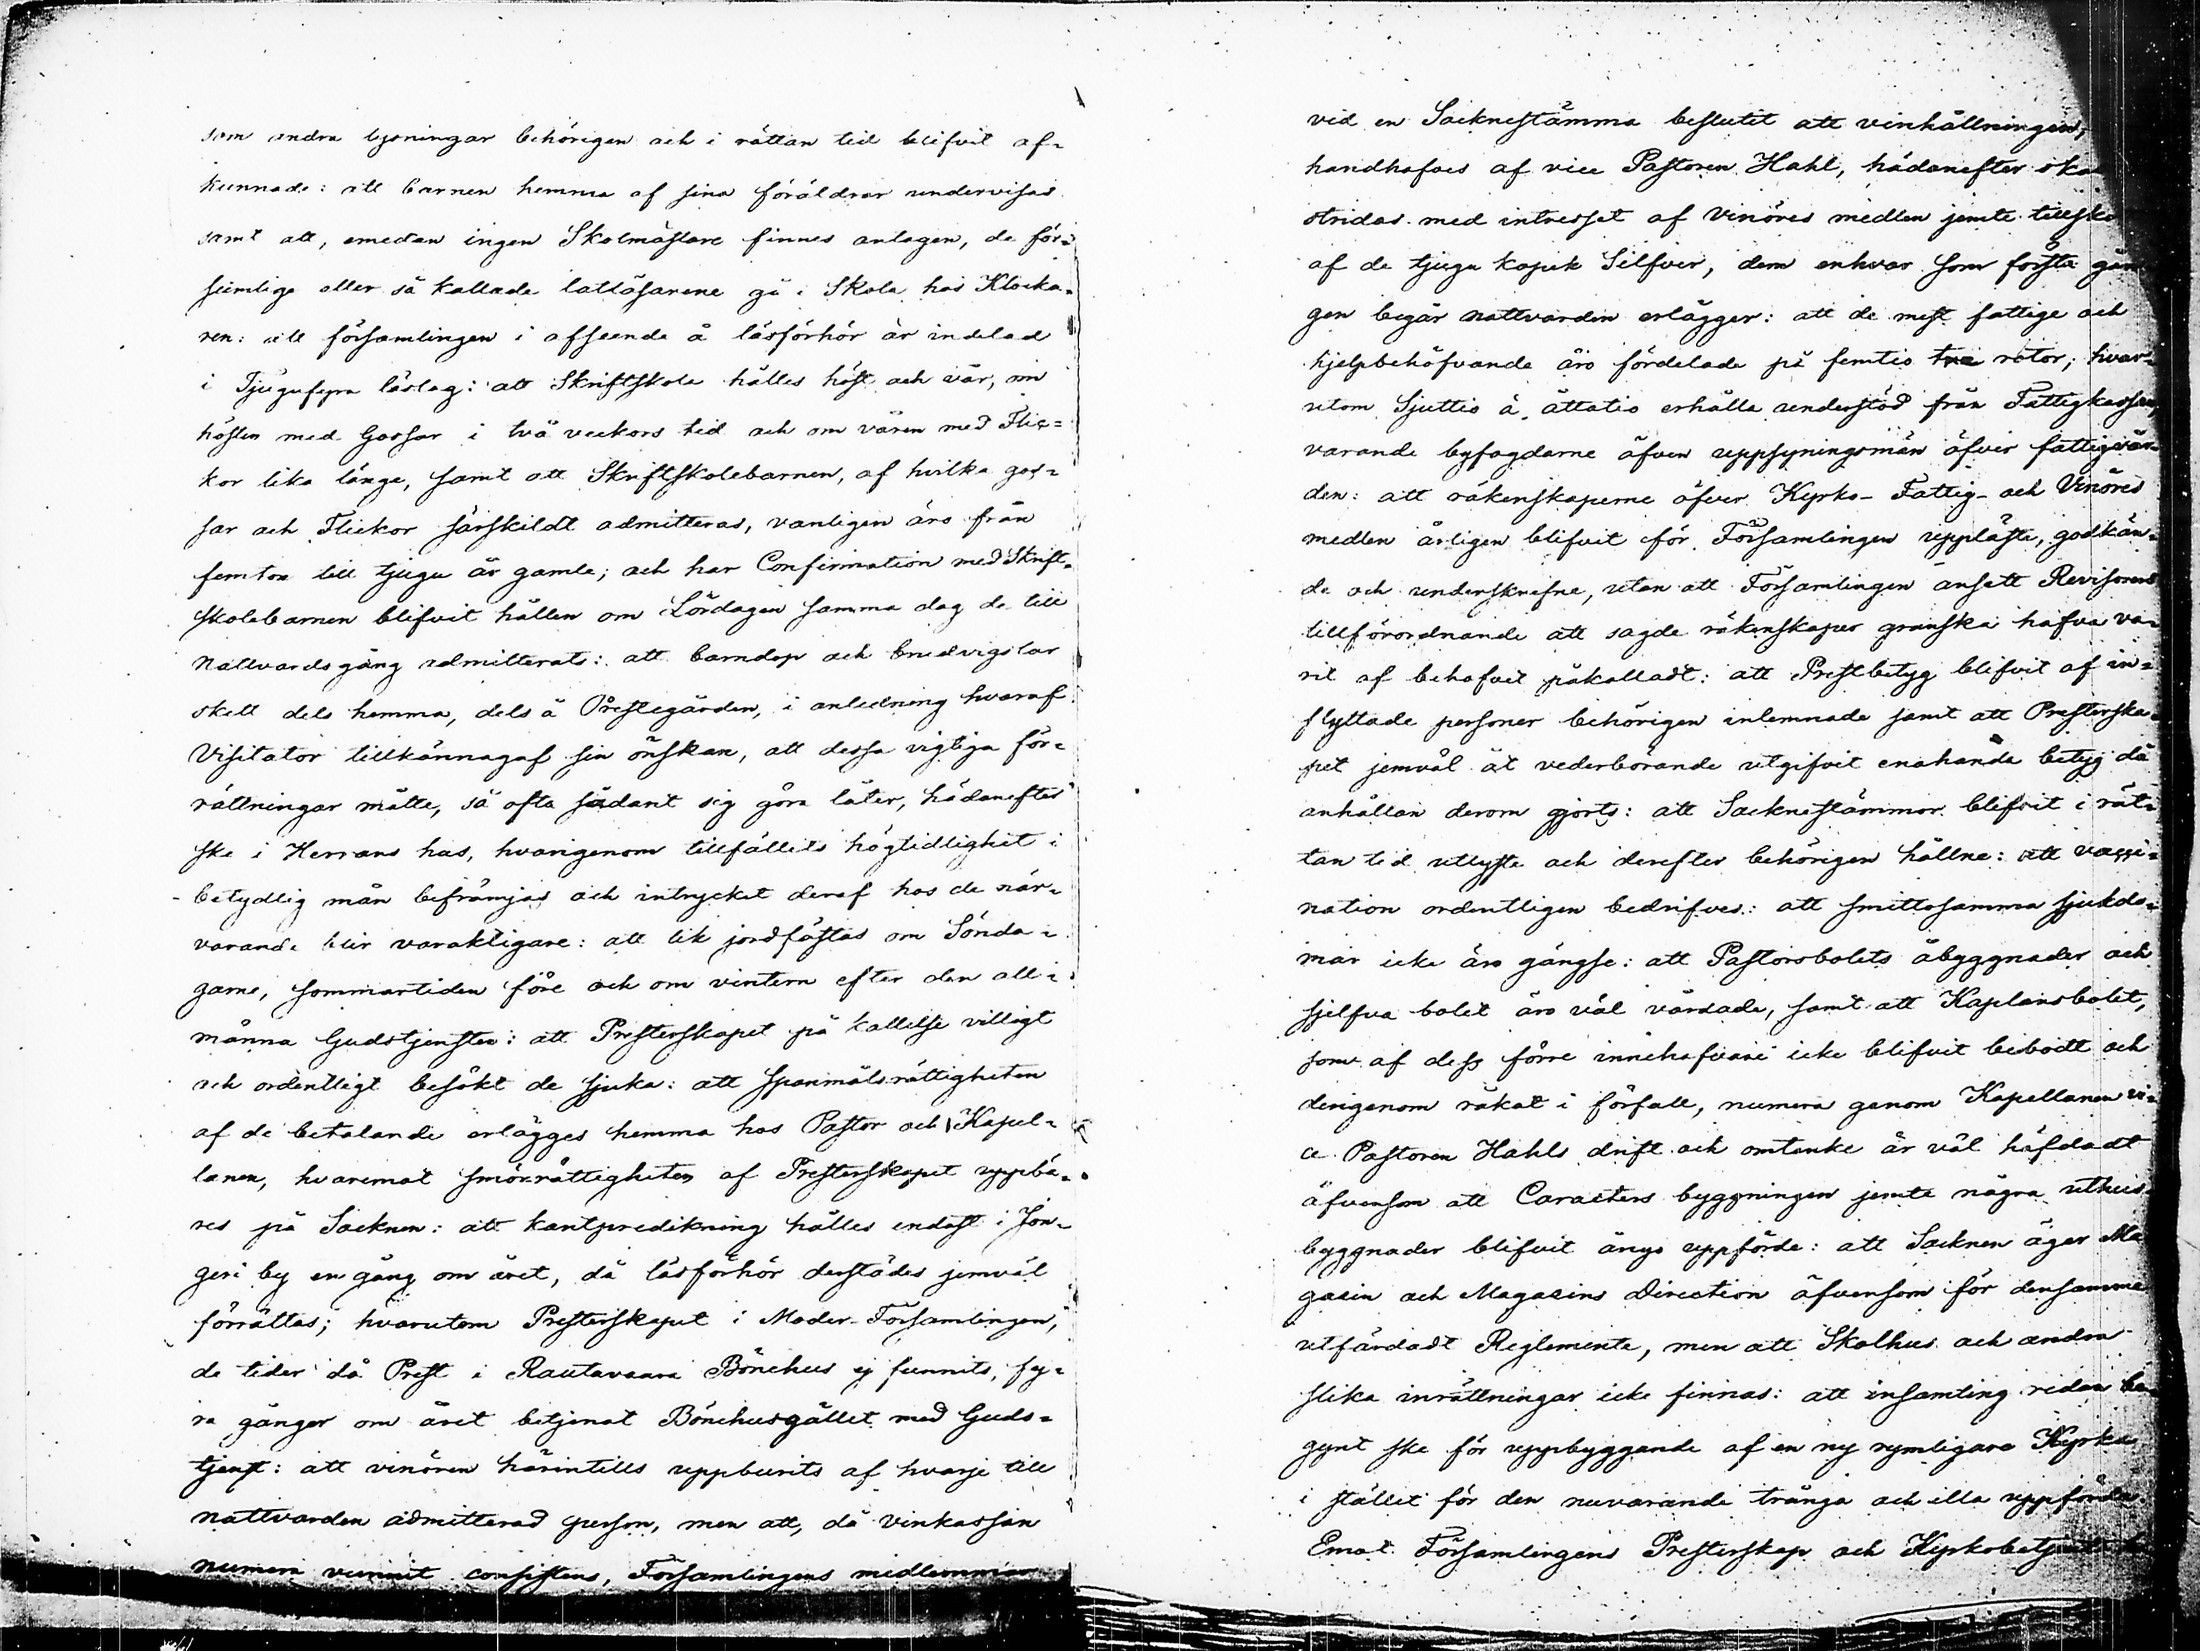 som andra lysningar behörigen och i rättan tid blifvit af=
kunnade: att barnen hemma af sina föräldrar undervisas
samt att, emedan ingen Skolmästare finnes antagen, de för=
sumlige eller så kallade lattläsarene gå i Skola hos Klocka=
ren: att församlingen i afseende å läsförhör är indelad
i Tjugufyra läslag: att Skriftskola hålles höst och vår, om
hösten med Gossar i två veckors tid och om våren med Flic=
kor lika länge, samt att Skriftskolebarnen, af hvilka gos=
sar och Flickor särskildt admitteras, vanligen äro från
femton till tjugu år gamle; och har Confirmation med Skrift=
skolebarnen blifvit hållen om Lördagen samma dag de till
nattvardsgång admitterats: att barndop och brudvigslar
skett dels hemma, dels å Prestegården, i anledning hvaraf
Visitator tillkännagaf sin önskan, att dessa vigtiga för=
rättningar måtte, så ofta sådant sig göra låter, hädanefter
ske i Herrans hus, hvarigenom tillfällets högtidlighet i
betydlig mån befrämjas och intrycket deraf hos de när=
varande blir varaktigare: att lik jordfästas om Sönda=
garne, sommartiden före och om vintern efter den all=
männa Gudstjensten: att Presterskapet på kallelse villigt
och ordentligt besökt de sjuka: att spanmålsrättigheten
af de betalande erlägges hemma hos Pastor och Kapel=
lanen, hvaremot smörrättigheten af Presterskapet uppbä=
res på Socknen: att kantpredikning hålles endast i Jon=
geri by en gång om året, då läsförhör derstädes jemväl
förrättas; hvarutom Presterskapet i Moder-Församlingen,
de tider då Prest i Rautavaara Bönehus ej funnits, fy=
ra gånger om året betjenat Bönehusgället med Guds=
tjenst: att vinören härintills uppburits af hvarje till
nattvarden admitterad person, men att, då vinkassan
numera vunnit consistens, Församlingens medlemmar
vid en Socknestämma beslutit att vinhållningen,
handhafves af vice Pastoren Hahl, hädanefter
stridas med intresset af vinöres medlen jemte
af de tjugu kopek Silfver, dem enhvar som första gån
gen begår nattvarden erlägger: att de mest fattige och
hjelpbehöfvande äro fördelade på femtio tre rotor; hvar=
utom Sjuttio à åttatio erhålla understöd från Fattigkassan,
varande byfogdarne äfven uppsyningsmän öfver fattigvår=
den: att räkenskaperne öfver Kyrko- Fattig- och Vinöres
medlen årligen blifvit för Församlingen uppläste, godkän=
de och underskrefne, utan att Församlingen ansett Revisorers
tillförordnande att sagde räkenskaper granska hafva va=
rit af behofvet påkalladt: att Prestbetyg blifvit af in=
flyttade personer behörigen inlemnade samt att Presterska=
pet jemväl åt vederbörande utgifvit enahanda betyg då
anhållan derom gjorts: att Socknestämmor blifvit i rät=
tan tid utlyste och derefter behörigen hållne: att vacci=
nation ordentligen bedrifves: att smittosamma sjukdo=
mar icke äro gängse: att Pastorsbolets åbyggnader och
sjelfva bolet äro väl vårdade, samt att Kaplansbolet,
som af dess förre innehafvare icke blifvit bebodt och
derigenom råkat i förfall, numera genom Kapellanen vi=
ce Pastoren Hahls drift och omtanke är väl häfdadt
äfvensom att Caracters byggningen jemte några uthus=
byggnader blifvit ånyo uppförde: att Socknen äger Ma
gasin och Magasins Direction äfvensom för densamma
utfärdadt Reglemente, men att Skolhus och andra
slika inrättningar icke finnas: att insamling redan be=
gynt ske för uppbyggande af en ny rymligare Kyrka
i stället för den nuvarande trånga och illa uppförda.
Emot Församlingens Presterskap och Kyrkobetjente